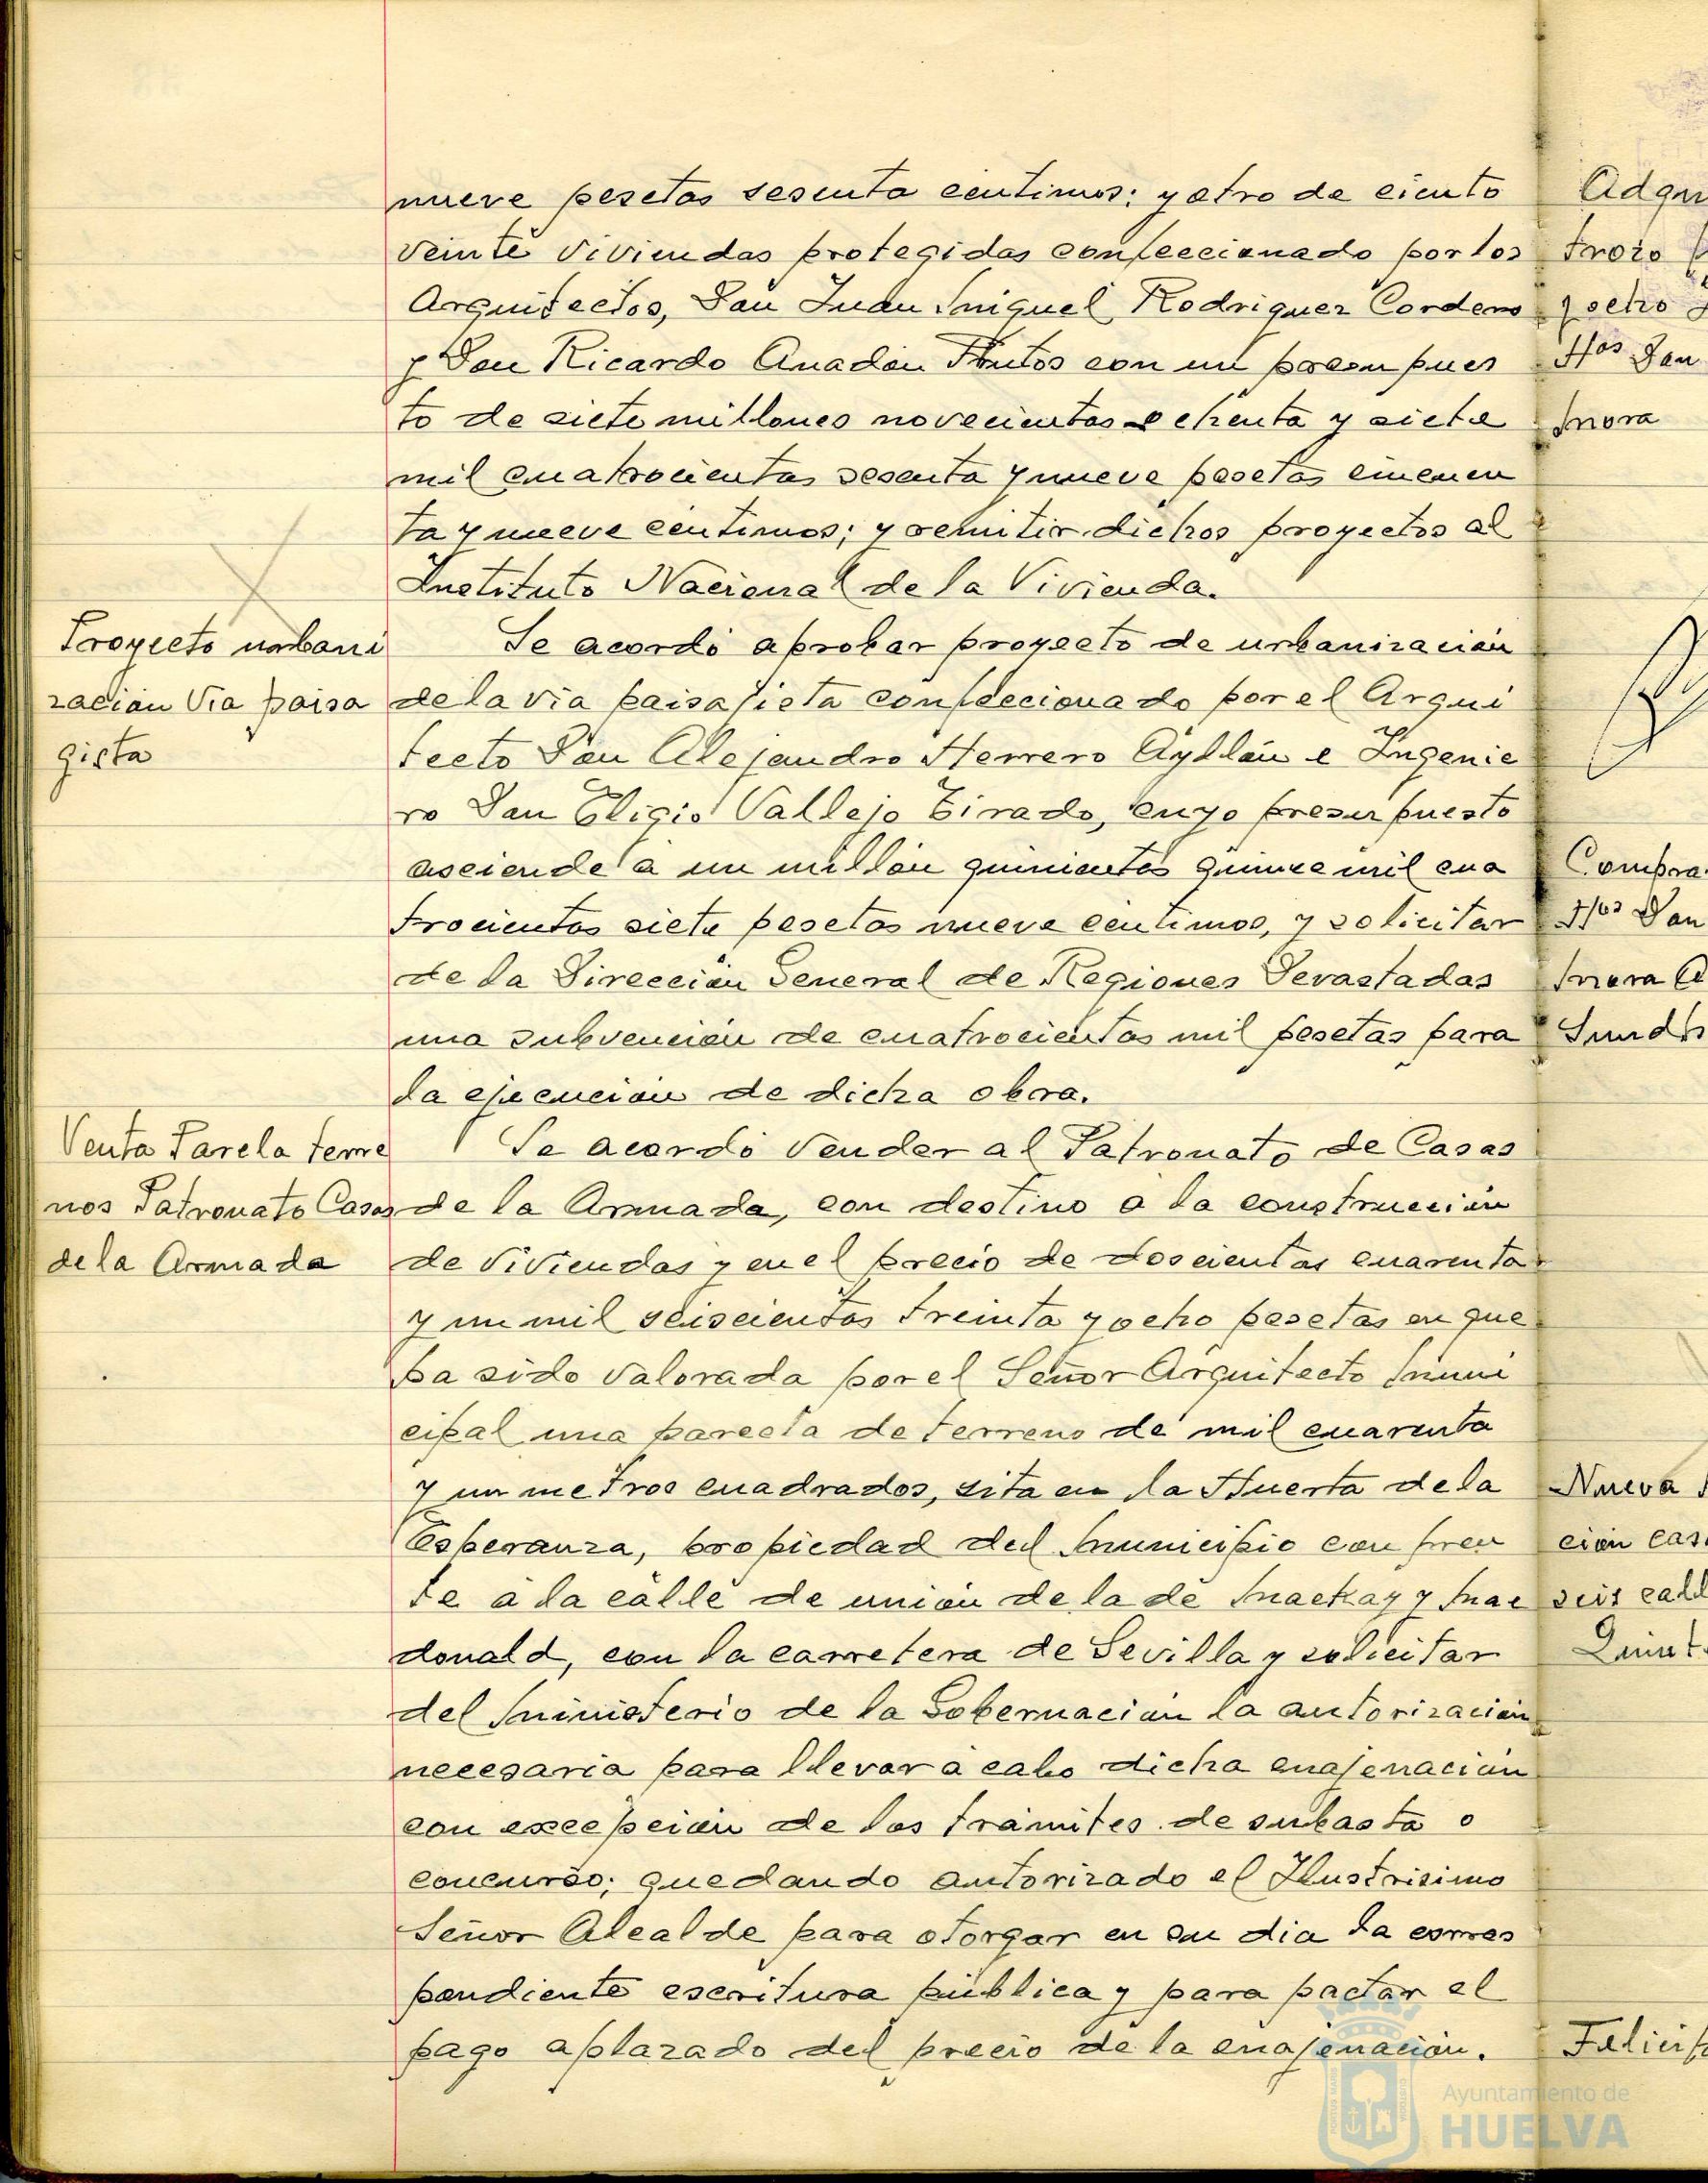 nueve pesetas sesenta centimos; y otro de ciento
veinte viviendas protegidas confeccionado por los
Arquitectos, Don Juan Miguel Rodriguez Cordero
y Don Ricardo Anadón Frutos con un presupues
to de siete millones novecientas ochenta y siete
mil cuatrocientas sesenta y nueve pesetas cincuen
ta y nueve centimos; y remitir dichos proyectos al
Instituto Nacional de la Vivienda.
Proyecto urbani
zación Via paisa
gista
Se acordó aprobar proyecto de urbanización
de la via paisajista confeccionado por el Arqui
tecto Don Alejandro Herrero Ayllón e Ingenie
ro Don Eligio Vallejo Tirado, cuyo presupuesto
asciende a un millón quinientas quince mil cua
trocientas siete pesetas nueve centimos, y solicitar
de la Dirección General de Regiones Devastadas
una subvención de cuatrocientas mil pesetas para
la ejecución de dicha obra.
Venta Parcela terre
nos Patronato Casas
de la Armada
Se acordó vender al Patronato de Casas
de la Armada, con destino a la construcción
de viviendas y en el precio de doscientas cuarenta
y un mil seiscientas treinta y ocho pesetas en que
ha sido valorada por el Señor Arquitecto Muni
cipal una parcela de terreno de mil cuarenta
y un metros cuadrados, sita en la Huerta de la
Esperanza, propiedad del Municipio con fren
te a la calle de unión de la de Mackay y Mac
donald, con la carretera de Sevilla y solicitar
del Ministerio de la Gobernación la autorización
necesaria para llevar a cabo dicha enajenación
con excepción de los trámites de subasta o
concurso; quedando autorizado el Ilustrisimo
Señor Alcalde para otorgar en su dia la corres
pondiente escritura pública y para pactar el
pago aplazado del precio de la enajenación.
Adqu
trozo
y ocho
Hos Don
Mora
Compra
Hos Don
Mora
Nueva
ción cas
seis call
Quint
Felicit
Ayuntamiento de
HUELVA